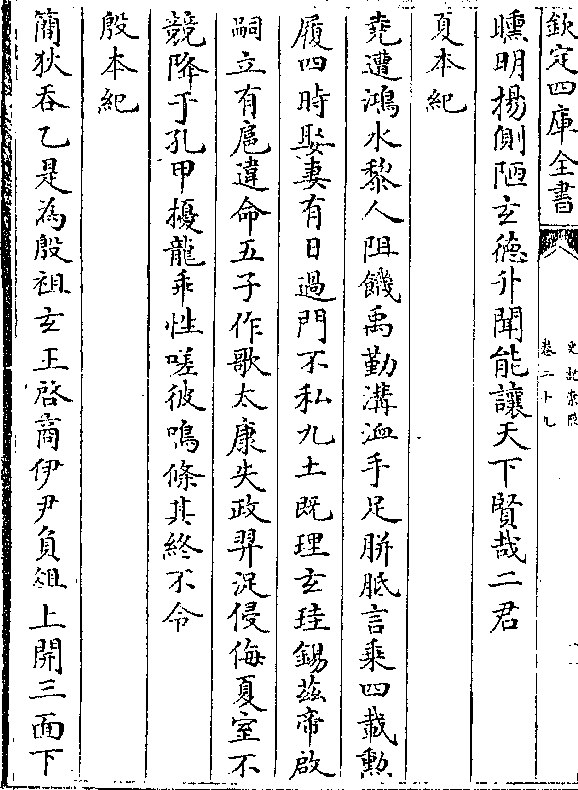 欽定四庫全書
史記索隱
卷二十九
曛明揚側陋玄德升聞能讓天下賢哉二君
夏本紀
堯遭鴻水黎人阻饑禹勤溝洫手足胼胝言乘四載動
履四時娶妻有日過門不私九土既理玄珪錫茲帝啟
嗣立有扈違命五子作歌太康失政羿浞侵侮夏室不
競降于孔甲擾龍乖性嗟彼鳴條其終不令
殷本紀
簡狄吞乙是為殷祖玄王啓商伊尹負俎上開三面下